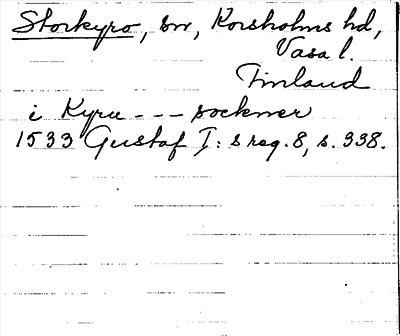 Storkyro, sn, Korsholms hd,
Vasa l.
Finland
i Kyru --- sockner
1533 Gustaf I:s reg. 8, s. 338.